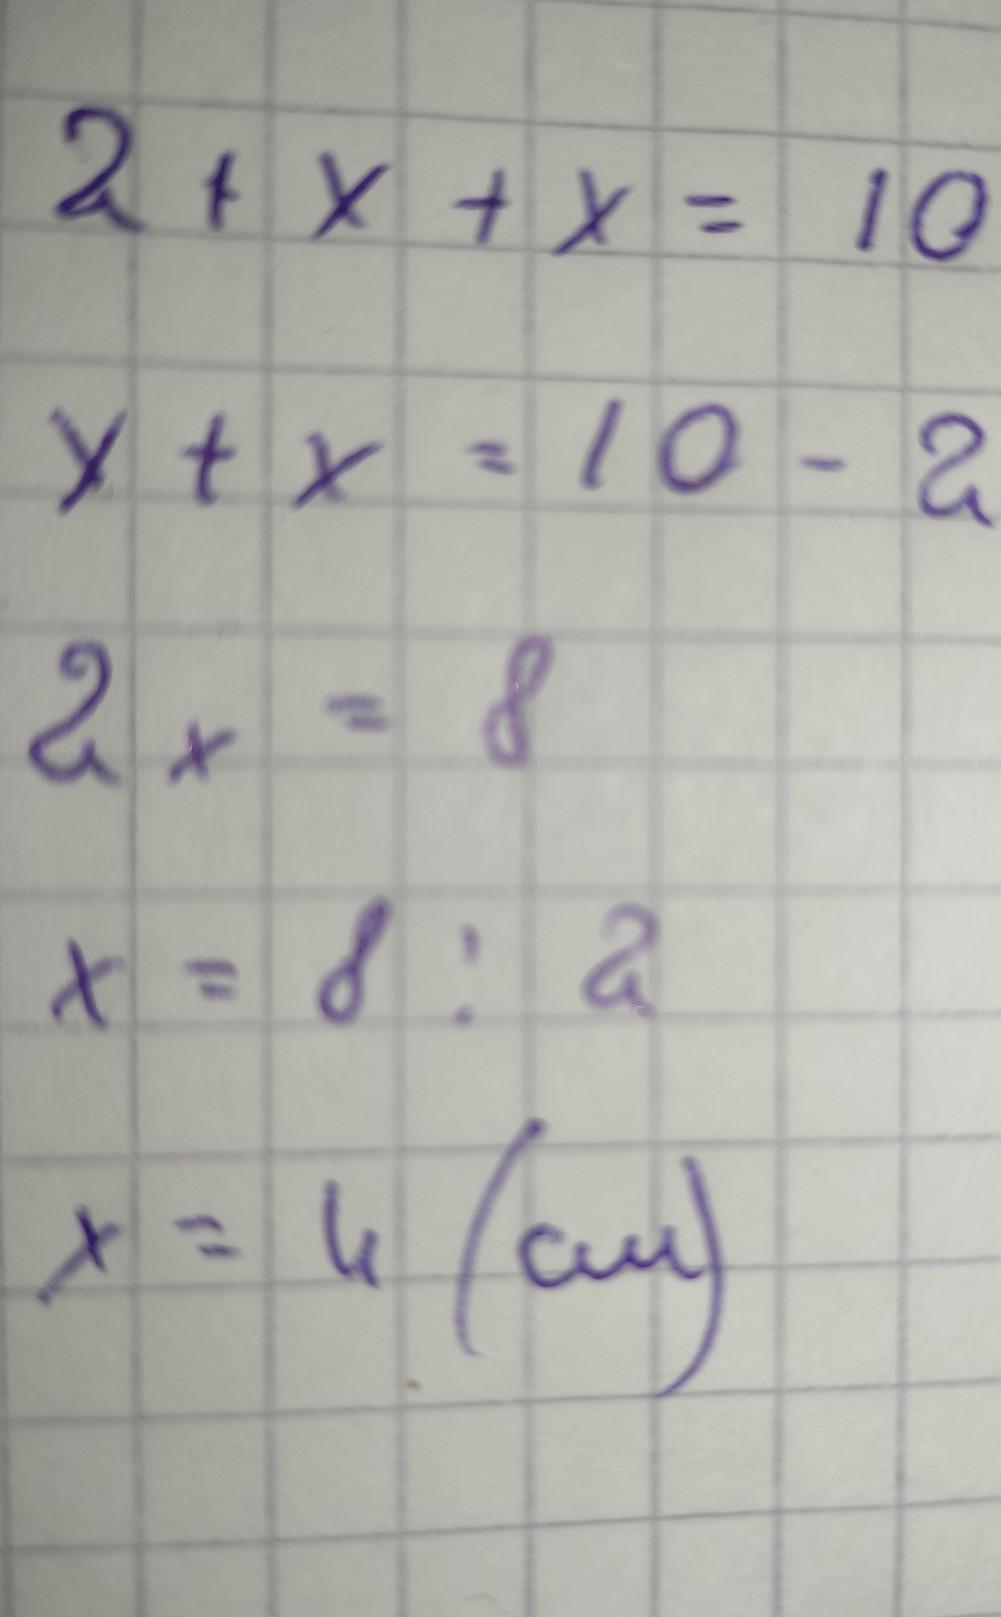 2 + x + x = 10
x + x = 10 - 2
2x = 8
x = 8 : 2
x = 4 (см)